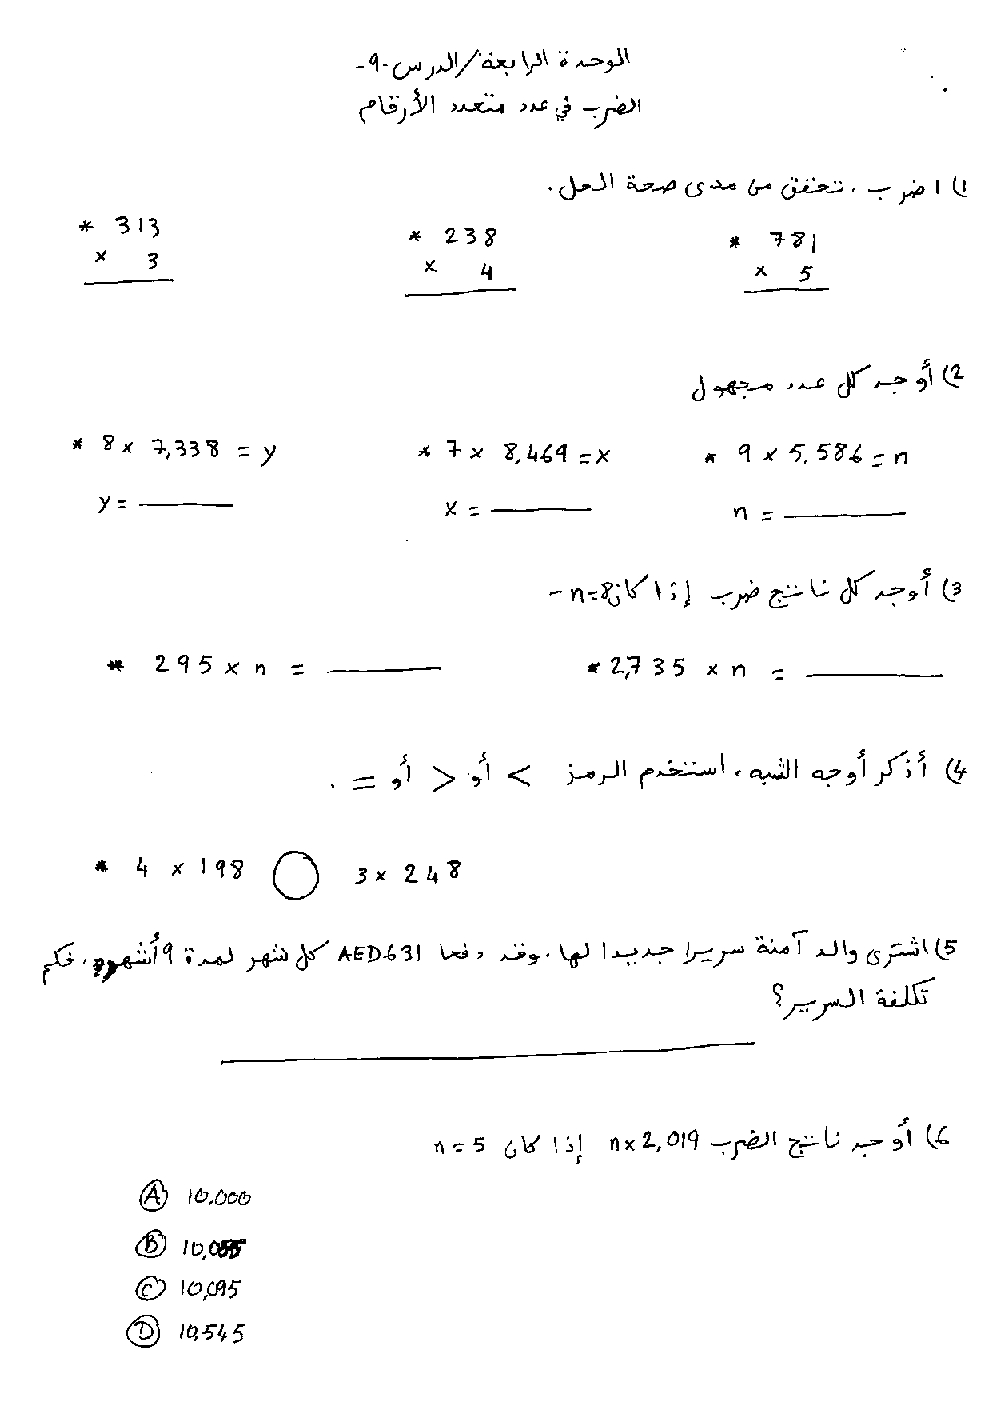 الوحدة الرابعة/الدرس -9-
الضرب في عدد متعدد الأرقام
1) اضرب ، تحقق من مدى صحة الحل .
* 781 * 238 * 313
× 5 × 4 × 3
2) أوجد كل عدد مجهول
* 9 × 5,586 = n * 7 × 8,469 = x * 8 × 7,338 = y
n = ______ x = ______ y = ______
3) أوجد كل ناتج ضرب إذا كان n=8 -
* 295 × n = ______ * 2,735 × n = ______
4) أذكر أوجه الشبه ، استخدم الرمز > أو < أو = .
* 4 × 198 ◯ 3 × 248
5) اشترى والد آمنة سريرا جديدا لها . وقد دفعا AED631 كل شهر لمدة 9 أشهر ، فكم
تكلفة السرير؟
6) أوجد ناتج الضرب n×2,019 إذا كان n=5
Ⓐ 10.000
Ⓑ 10,055
Ⓒ 10,095
Ⓓ 10,545